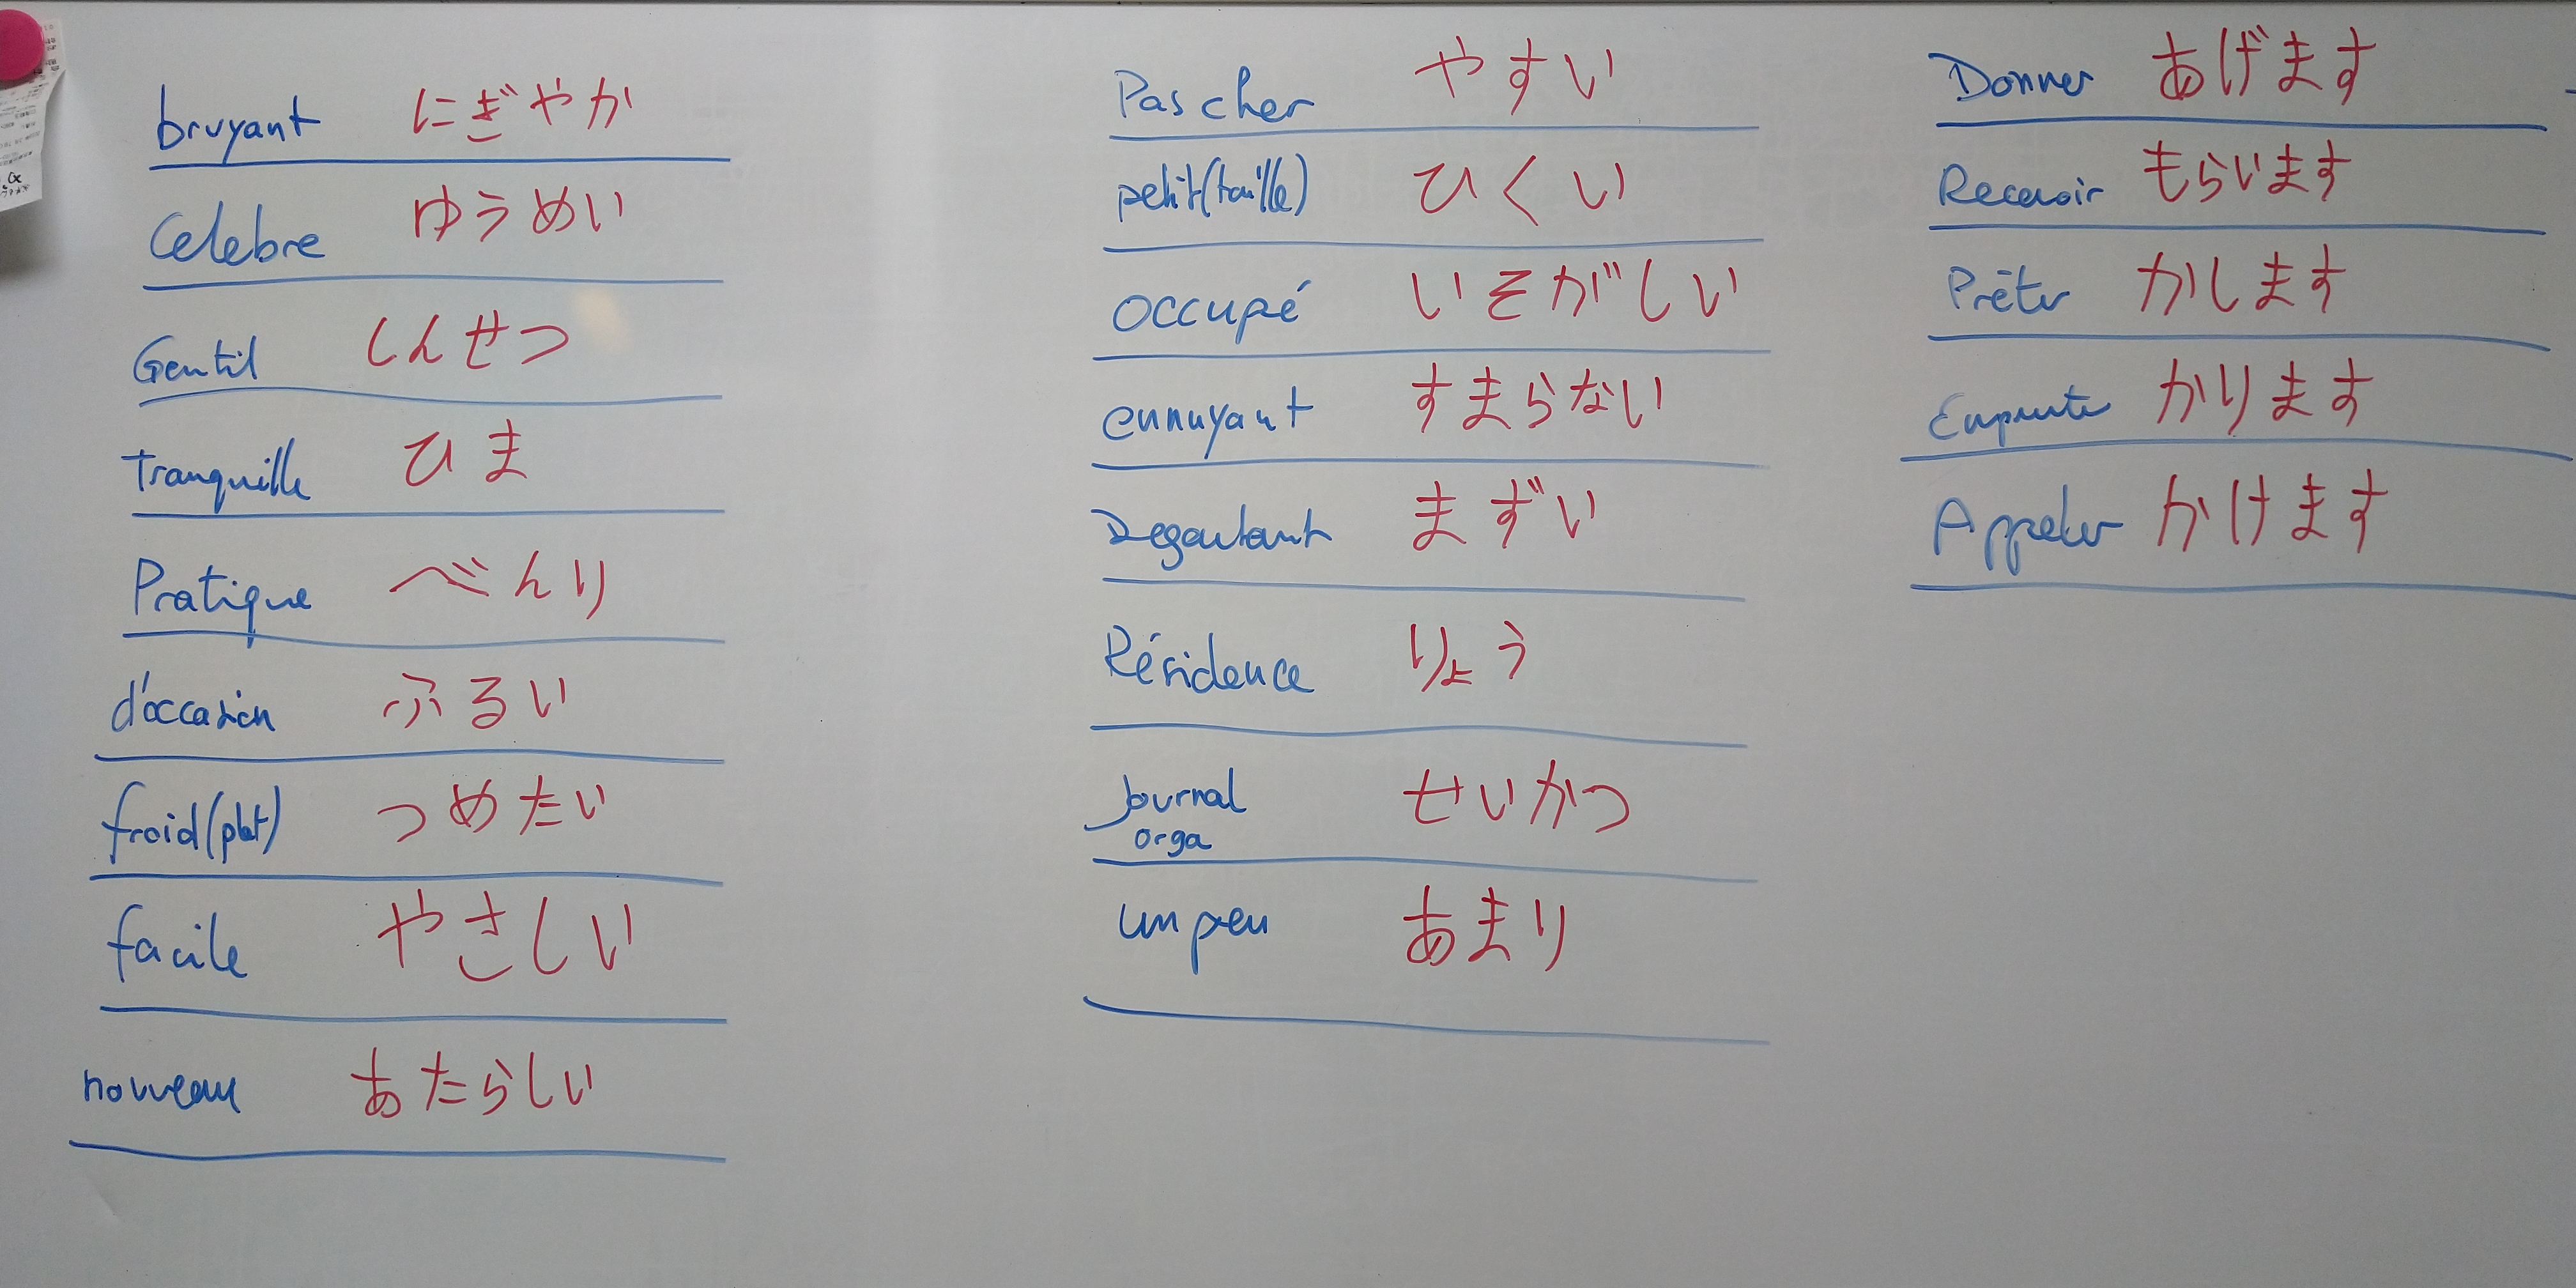 bruyant にぎやか
Celebre ゆうめい
Gentil しんせつ
Tranquille ひま
Pratique べんり
d'occasion ふるい
froid (plat) つめたい
facile やさしい
nouveau あたらしい
Pas cher やすい
petit (taille) ひくい
occupé いそがしい
ennuyant すまらない
Degoutant まずい
Résidence りょう
Journal せいかつ
orga
un peu あまり
Donner あげます
Recevoir もらいます
Prêter かします
Emprunter かります
Appeler かけます